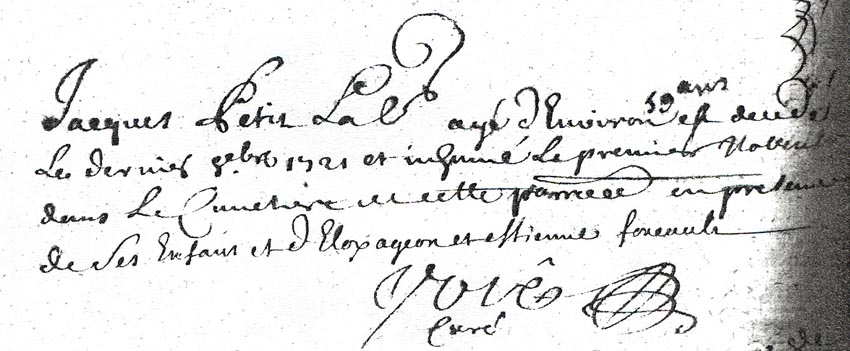 Jacques Petit La agé d Environ 59 ans est decedé
Le dernier 8bre 1721 et inhumé Le premier Novem
dans Le Cimetiere de cette parroisse en presence
de Ses Enfans et d Eloy pageon et estienne foucault
curé